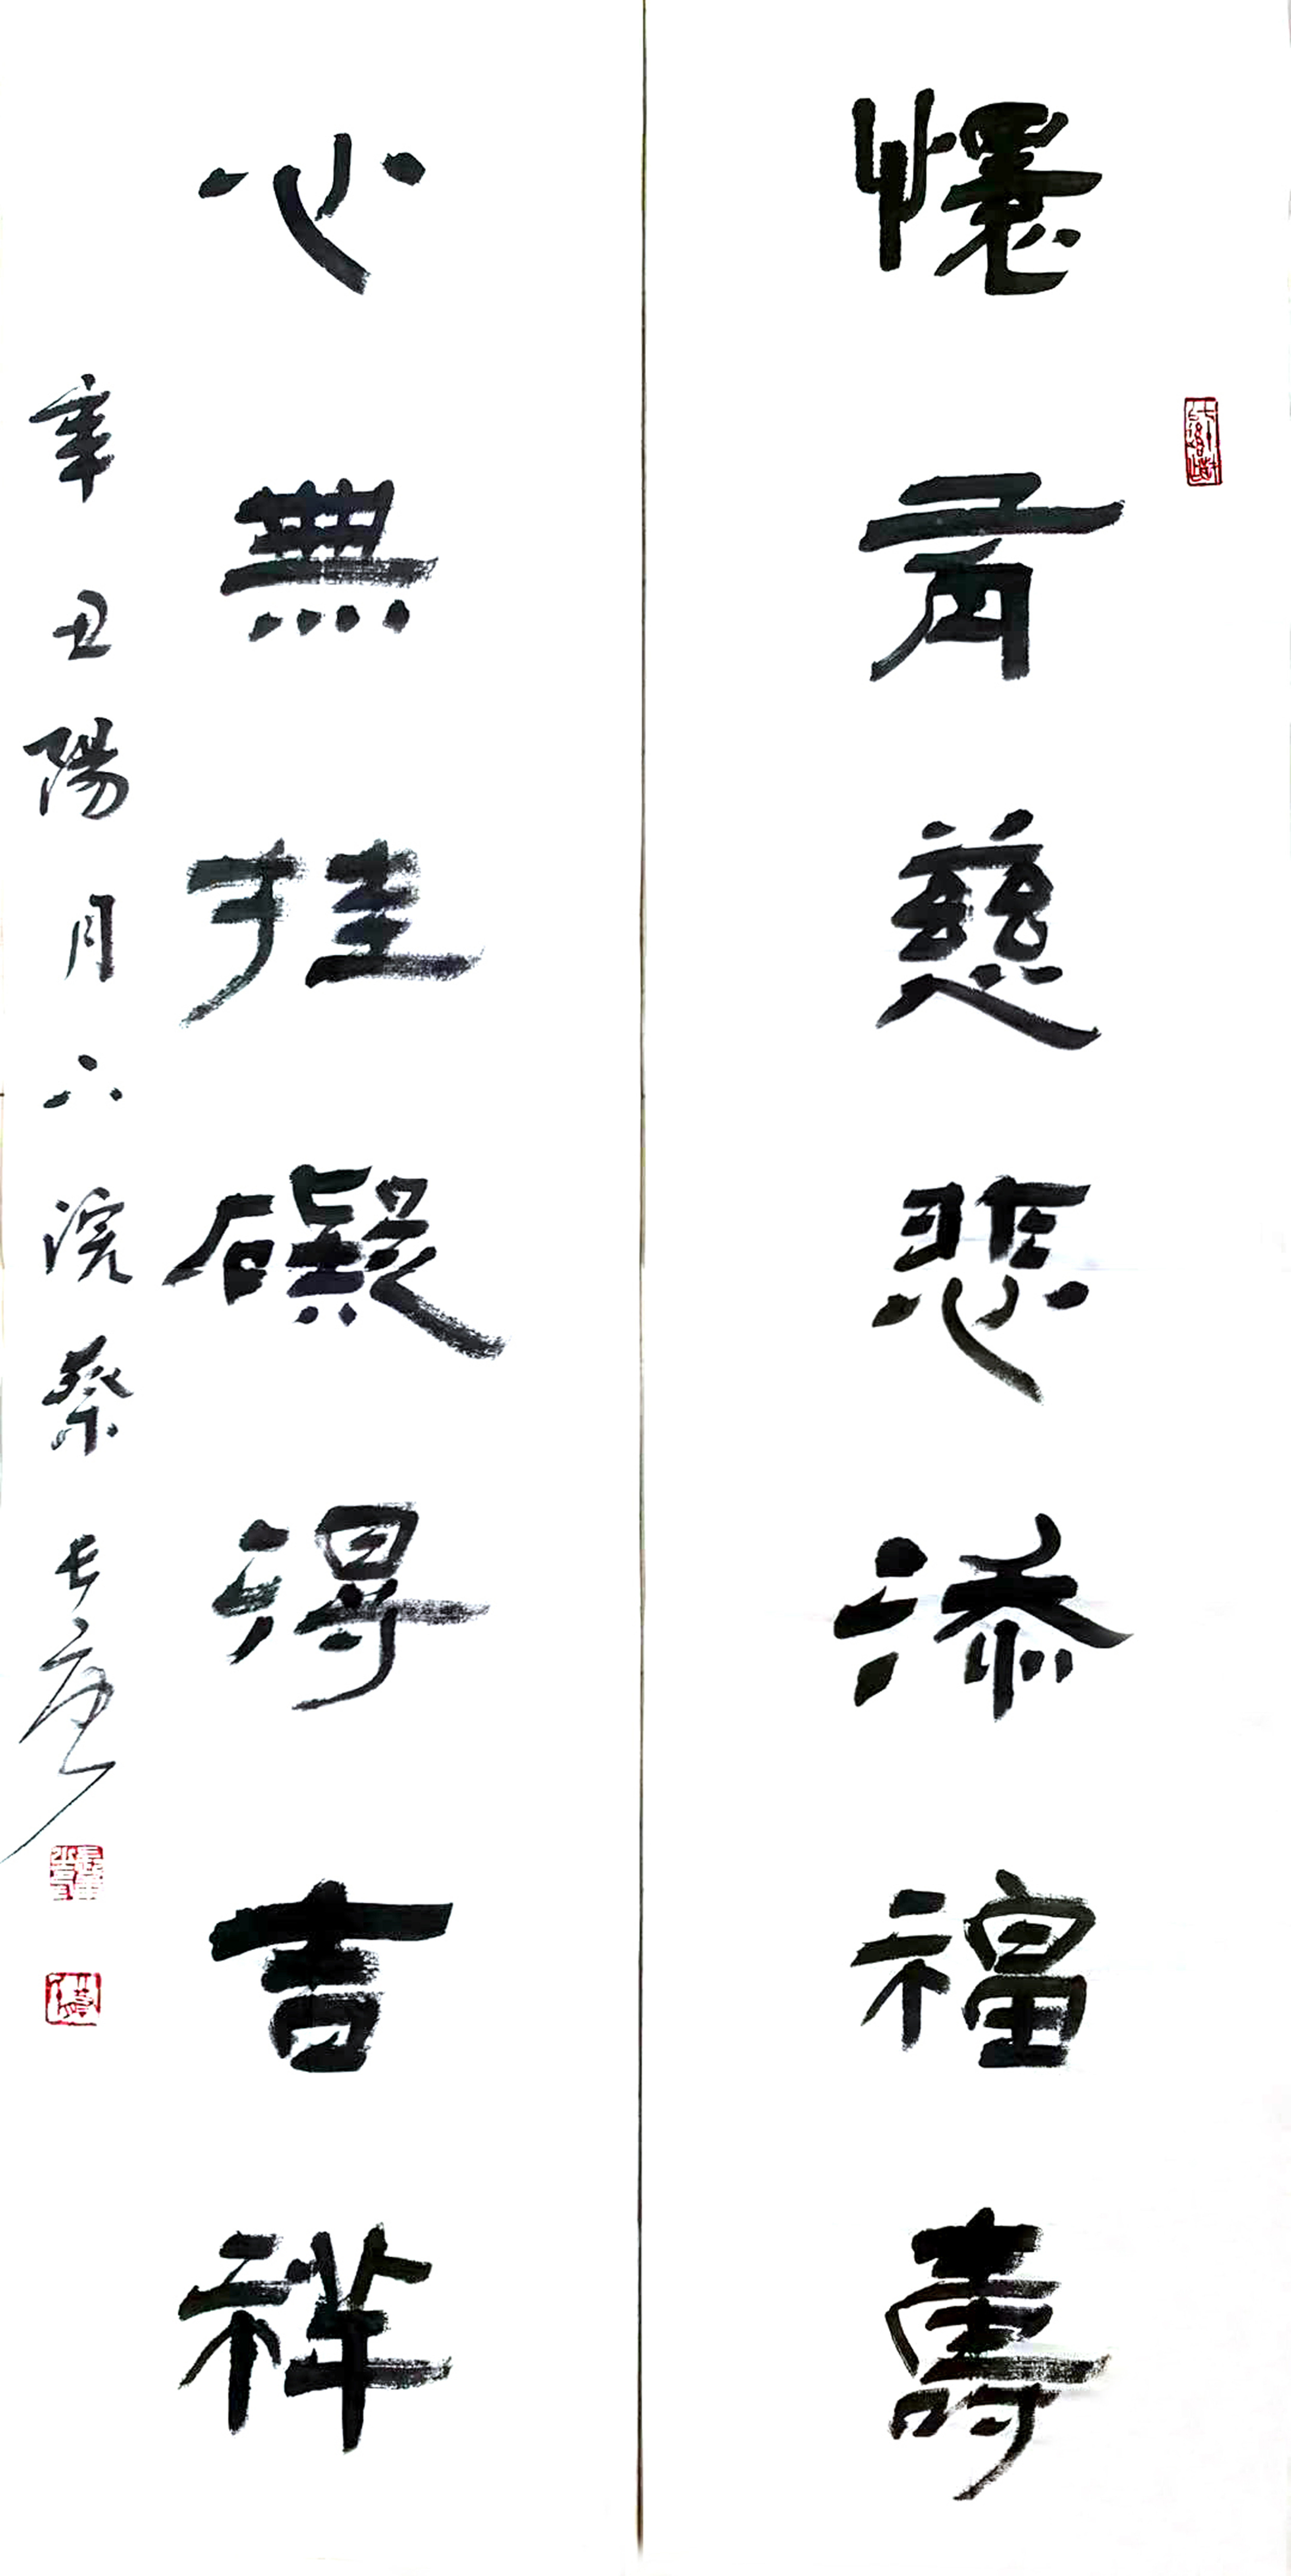 懷有慈悲添福壽
心無掛礙得吉祥
辛丑陽月六浣蔡長